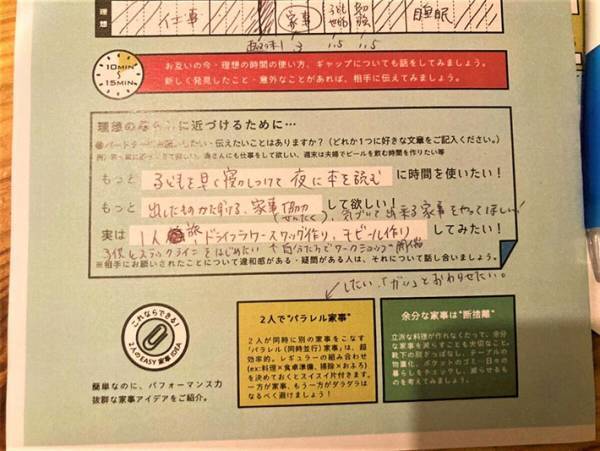 理想
仕事
家事
睡眠
1.5 1.5
10MIN
15MIN
お互いの今・理想の時間の使い方、ギャップについても話をしてみましょう。
新しく発見したこと・意外なことがあれば、相手に伝えてみましょう。
に近づけるために…
伝えたいことはありますか?(どれか1つに好きな文章をご記入ください。)
さんにも仕事をして欲しい、週末は夫婦でビールを飲む時間を作りたい等
もっと 子どもを早く寝かしつけて 夜に本を読む に時間を使いたい!
もっと 出したものかたずける、家事協力 して欲しい!
(せんたく)、気づいて出来る家事をやってほしい!
実は 1人旅 ドライフラワースワッグ作り、モビール作り してみたい!
をはじめたい 自分たちでワークショップ開催
※相手にお願いされたことについて違和感がある・疑問がある人は、それについて話し合いましょう。
したい、「が」とおわらせたい。
これならできる!
2人のEASY 家事 IDEA
簡単なのに、パフォーマンス力
抜群な家事アイデアをご紹介。
2人で"パラレル家事"
2人が同時に別の家事をこなす
「パラレル(同時並行)家事」は、超
効率的。レギュラーの組み合わせ
(ex:料理×食卓準備、掃除×おふろ)
を決めておくとスイスイ片付きます。
一方が家事、もう一方がダラダラは
なるべく避けましょう!
余分な家事は"断捨離"
立派な料理が作れなくたって、余分
な家事を減らすことも大切なこと。
靴下の裏がっぱなし、テーブルの
物置化、ポケットのゴミ…日々の
暮らしをチェックし、減らせるも
のを考えてみましょう。